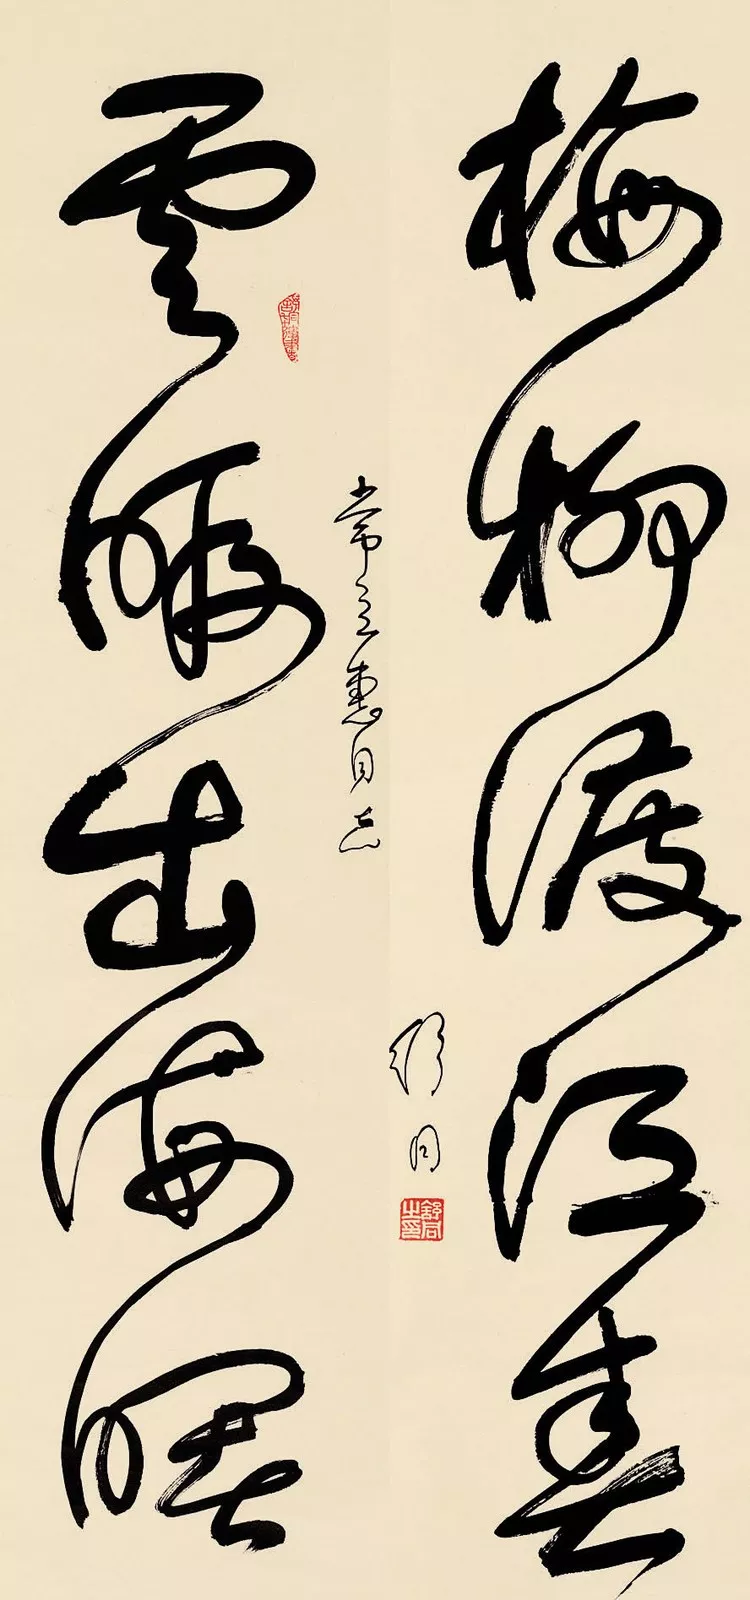 雲暇出海曙
常立惠同志
梅柳渡江春
舒同
舒同之印